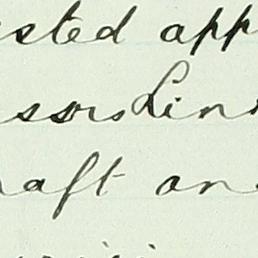 sted app
ssors Lin
aft an